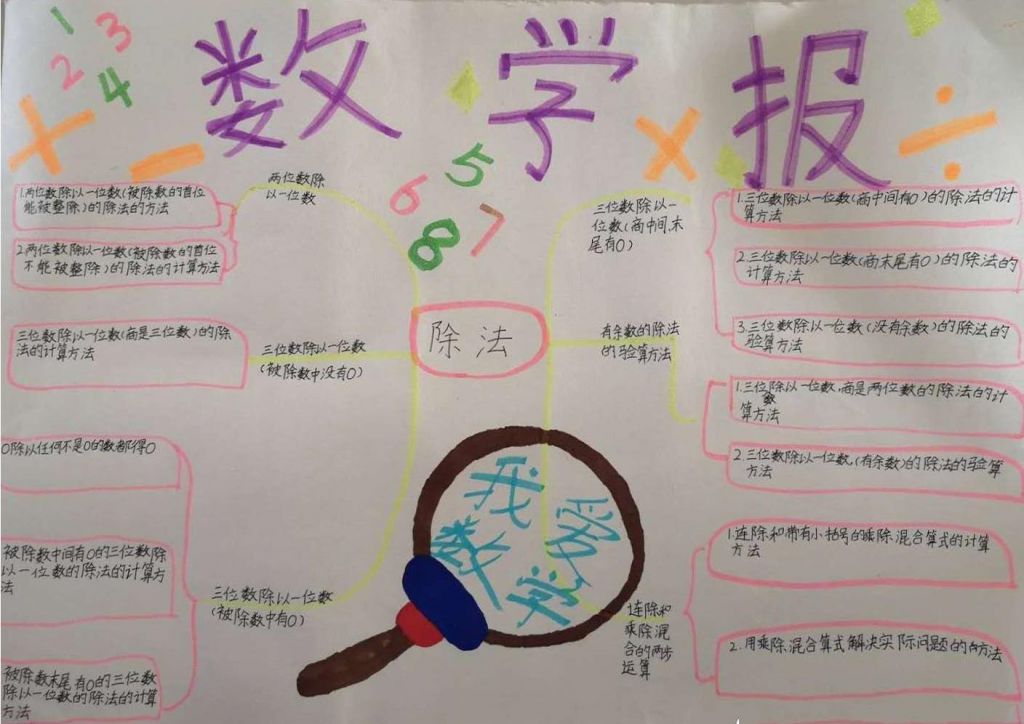 数学报
1
2
3
4
5
6
7
8
除法
两位数除
以一位数
1.两位数除以一位数(被除数的首位
能被整除)的除法的方法
2.两位数除以一位数(被除数的首位
不能被整除)的除法的计算方法
三位数除以一位数
(被除数中没有0)
三位数除以一位数(商是三位数)的除
法的计算方法
三位数除以一位数
(被除数中有0)
0除以任何不是0的数都得0
被除数中间有0的三位数除
以一位数的除法的计算方
法
被除数末尾有0的三位数
除以一位数的除法的计算
方法
三位数除以一
位数(商中间、末
尾有0)
1.三位数除以一位数(商中间有0)的除法的计
算方法
2.三位数除以一位数(商末尾有0)的除法的
计算方法
3.三位数除以一位数(没有余数)的除法的
验算方法
有余数的除法
的验算方法
1.三位数除以一位数,商是两位数的除法的计
算方法
2.三位数除以一位数,(有余数)的除法的验算
方法
连除和
乘除混
合的两步
运算
1.连除和带有小括号的乘除混合算式的计算
方法
2.用乘除混合算式解决实际问题的方法
我爱
数学